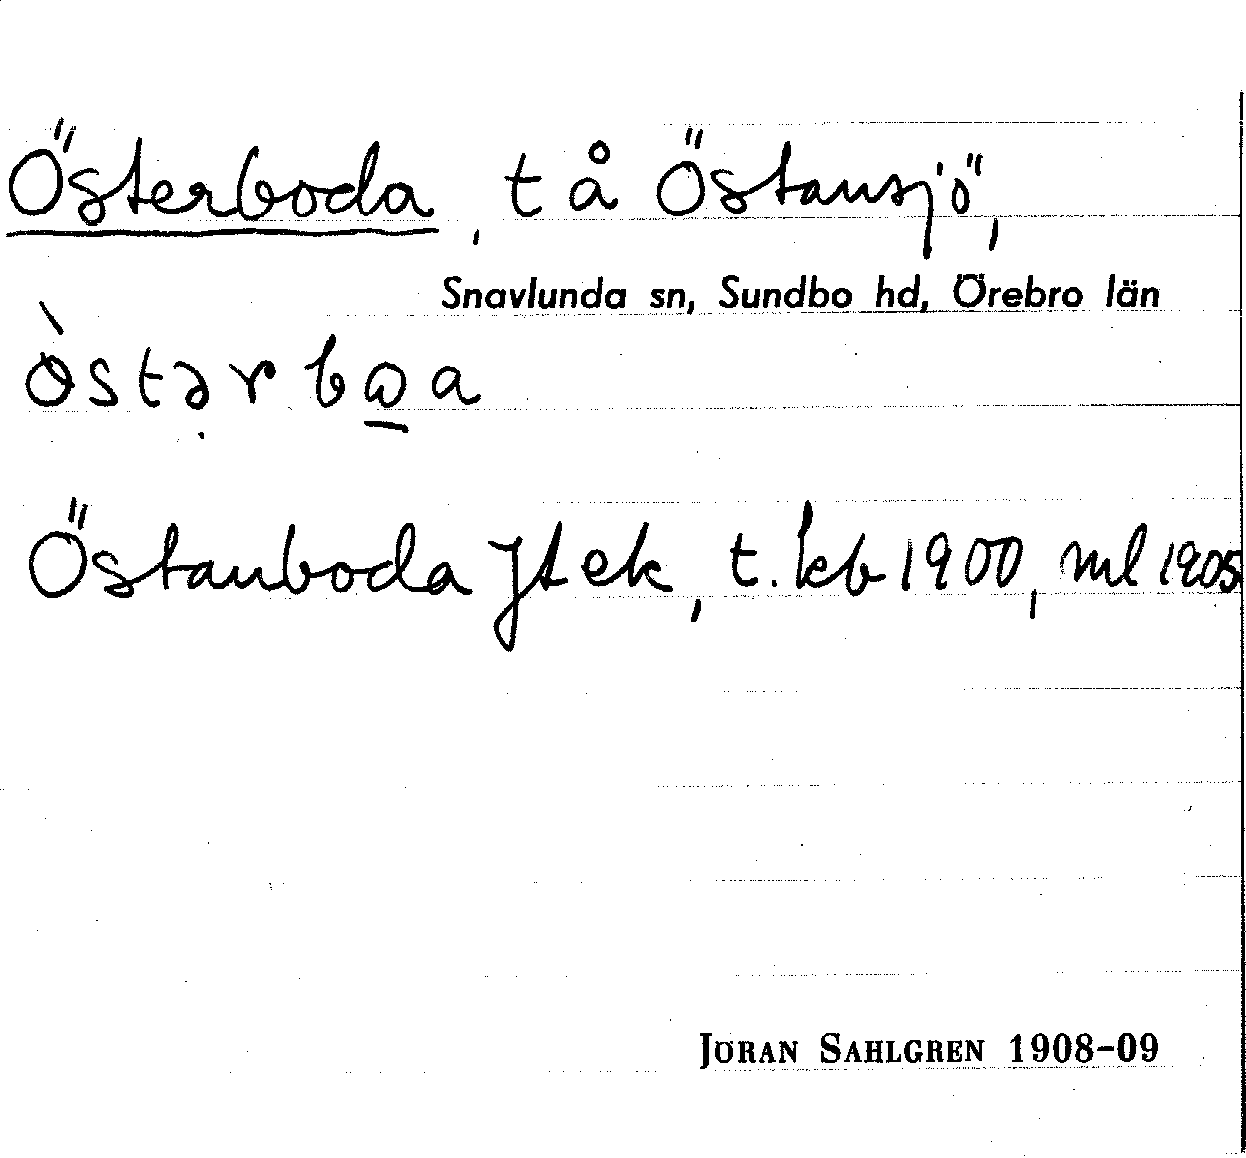 Österboda, t å Östansjö,
Snavlunda sn, Sundbo hd, Örebro län
Östanboda Jt ek, t. kb 1900, ml 1905
JÖRAN SAHLGREN 1908–09